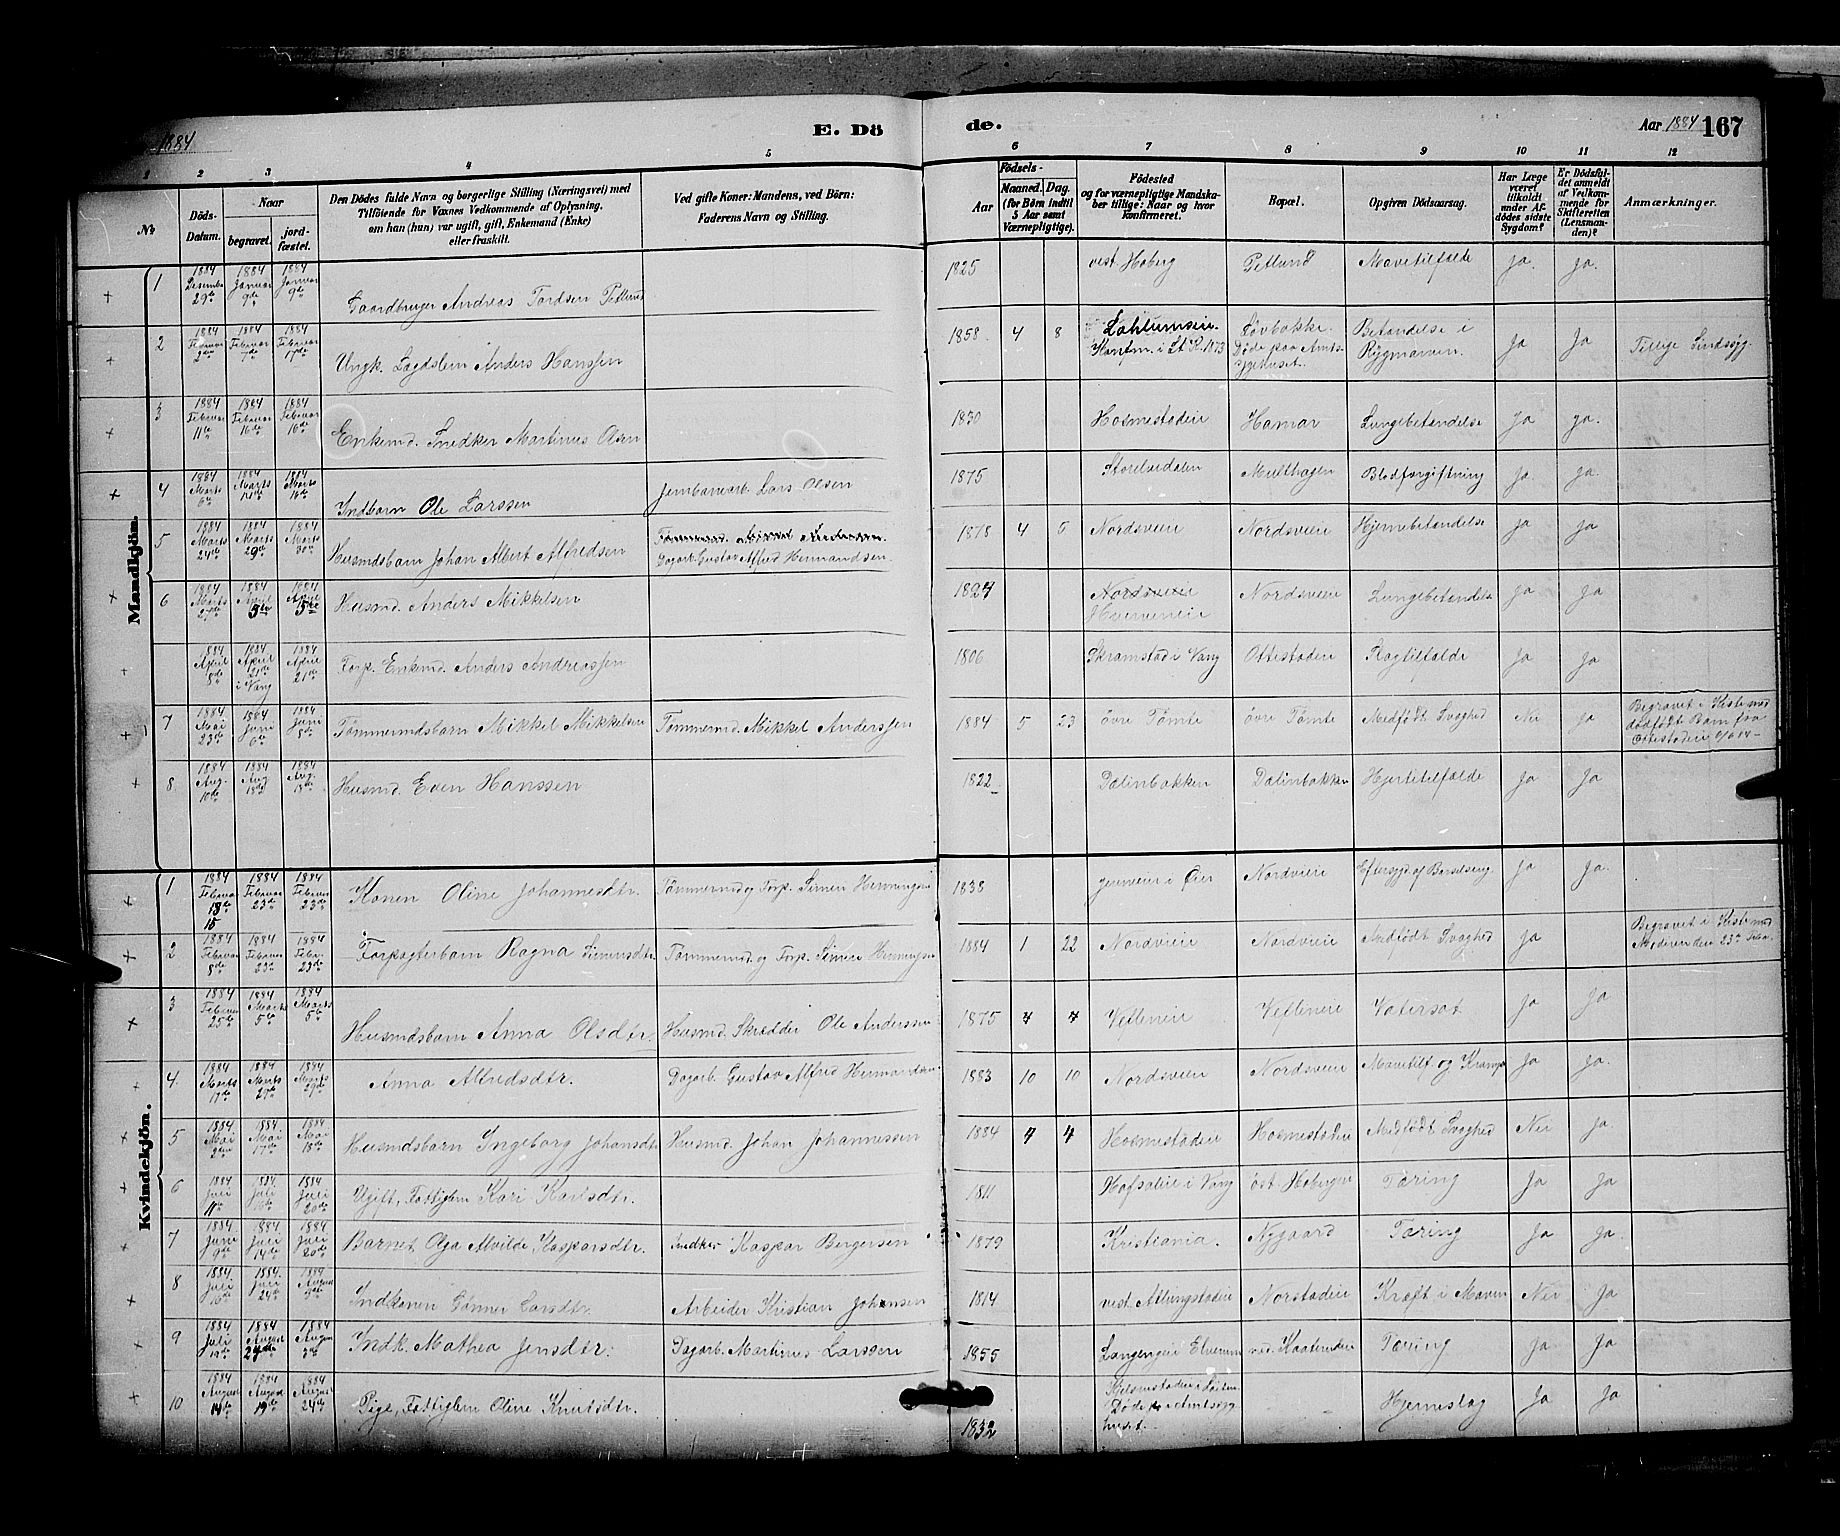 1884
E. Dö de.
Aar 1884 167
1 2 3 4 5 6 7 8 9 10 11 12
No
Döds-Datum.
Naar
begravet.
jord-fæstet.
Den Dödes fulde Navn og borgerlige Stilling (Næringsvei) med
Tilföiende for Voxnes Vedkommende af Oplysning,
om han (hun) var ugift, gift, Enkemand (Enke)
eller fraskilt.
Ved gifte Koner: Mandens, ved Börn:
Faderens Navn og Stilling.
Födsels-
Aar
Maaned. Dag.
(for Börn indtil
5 Aar samt
Værnepligtige).
Födested
og for værnepligtige Mandska-
ber tillige: Naar og hvor
konfirmeret.
Bopæl.
Opgiven Dödsaarsag.
Har Læge
været
tilkaldt
under Af-
dödes sidste
Sygdom?
Er Dödsfal-
det anmeldt
af Vedkom-
mende for
Skifteretten
(Lensman-
den)?
Anmærkninger.
Mandkjön.
1 1884 29de 1884 Januar 9de 1884 Januar 9de Gaardbruger Andreas Tordsen 1825 vest. Hoberg Mavetilfælde Ja. Ja.
2 1884 Februar 2de 1884 Februar 7de 1884 Februar 17de Ungk. Lægdslem Anders Hanssen 1858 4 8 Konfm. i St. K. 1873 Døde paa Amts-sygehuset. Betændelse i Rygmarven. Ja Ja Tillige Sindssyg.
3 1884 Februar 11te 1884 Februar 16de 1884 Februar 16de Enkemd. Snedker Martinus Olsen 1830 Hosmestadeie Hamar Lungebetændelse Ja Ja.
4 1884 Marts 6te 1884 Marts 1884 Marts 16de Indbarn Ole Larssen Jernbanearb. Lars Olsen 1875 Storelvedalen Multhagen Blodforgiftning Ja. Ja.
5 1884 Marts 24de 1884 Marts 29de 1884 Marts 30te Husmdsbarn Johan Albert Alfredsen Dagarb. Gustav Alfred Hermandsen. 1878 4 5 Nordsveie Nordsveie Hjernebetændelse Ja Ja
6 1884 Marts 27de 1884 April 5te 1884 April 5te Husmd. Anders Mikkelsen 1824 Nordsveie Nordsveie Lungebetændelse Ja Ja
1884 April 8de 1884 April 21de i Vang 1884 April 21de Forp. Enkmd. Anders Andreassen 1806 Skramstad i Vang Ottestadeie Ja Ja
7 1884 Mai 23de 1884 Juni 6te 1884 Juni 8de Tömmermdsbarn Mikkel Mikkelsen Tömmermd. Mikkel Anderssen 1884 5 23 övre Tömte övre Tömte Medfödt Svaghed Nei Ja Begravet i Kiste med dödfödt Barn fra Ottestadeie
8 1884 Aug. 10de 1884 Aug 18de 1884 Aug. Husmd. Even Hanssen 1822 Dælinbakken Dælinbakken Hjertetilfælde Ja Ja
Kvindekjön.
1 1884 Februar 1884 Februar 23de 1884 Februar 23de Konen Oline Johannesdtr. Tömmermd og Forp. Simen Hermingsen 1838 Nordveie Eftersygd. af Barselseng. Ja Ja.
2 1884 Februar 8de 1884 Februar 23de 1884 Febr. 23de Forpagterbarn Ragna Simensdtr. Tömmermd og Forp. Simen 1884 1 22 Nordveie Nordveie Medfödt Svaghed Ja Begravet i Kiste med Moderen den 23de Febr.
3 1884 Februar 25de 1884 Marts 5te 1884 Marts 5te Husmdsbarn Anna Olsdtr. Husmd. Skrædder Ole Anderssen 1875 4 4 Ja Ja
4. 1884 Marts 19de 1884 Marts 29de 1884 Marts 29de Anna Alfredsdtr. Dagarb. Gustav Alfred Hermandsen. 1883 10 10 Nordsveie Nordsveie Mavetilf. og Krampe Ja Ja.
5 1884 Mai 2den 1884 Mai 17de 1884 Mai 18de Husmdsbarn Ingeborg Johansdtr. Husmd. Johan Johannessen 1884 4 4 Hosmestadeie Hosmestadeie Medfödt Svaghed Nei Ja.
6 1884 Juli 11te 1884. Juli 16de 1884 Juli 20de Ugift, Fattiglem Kari Karlsdtr. 1811 i Vang Tæring Ja Ja
7 1884 Juni 9de 1884 Juli 14de 1884 Juli 20de Barnet, Olga Alvilde Kasparsdtr. Snedker Kaspar Bergersen 1879 Kristiania. Nygaard Tæring Ja Ja
8 1884. Juli 16de 1884. Juli 24de 1884 August Indkonen Gönner Larsdtr. Arbeider Kristian Johansen 1814 vest. Atlungstadeie Norstadeie Kræft i Maven Nei Ja
9 1884 Juli 1884 August 1884 August 3de Indk. Mathea Jensdtr. Dagarb. Martinus Larssen 1855 Elverum Tæring Ja Ja
10 1884 August 14de 1884 August 19de 1884 August 24de Pige, Fattiglem Oline Knutsdtr. 1832 Døde paa Amtssygehuset. Hjerneslag Ja Ja